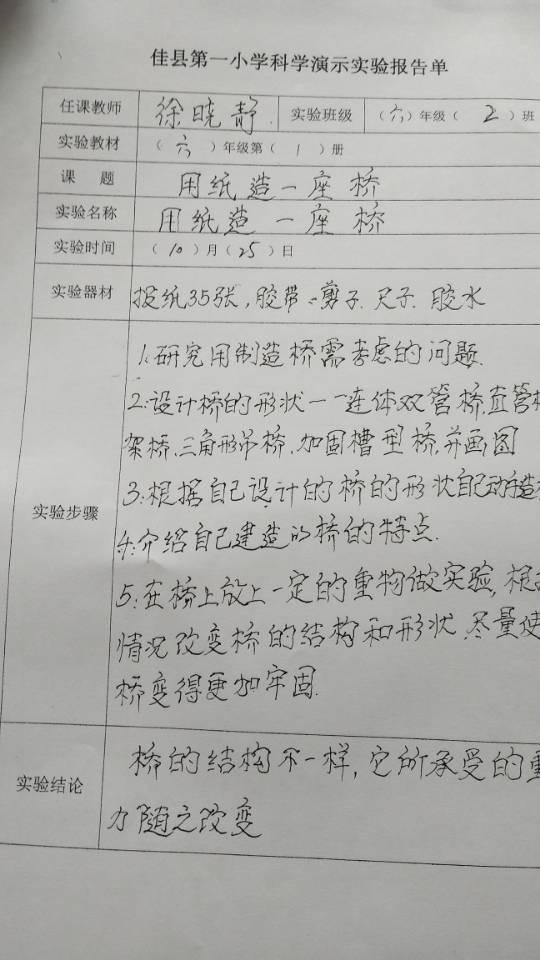 佳县第一小学科学演示实验报告单
任课教师 徐晓静. 实验班级 （六）年级（ 2 ）班
实验教材 （ 六 ）年级第（ 1 ）册
课 题 用纸造一座桥
实验名称 用纸造一座桥
实验时间 （ 10 ）月（ 25 ）日
实验器材 报纸35张，胶带、剪子.尺子.胶水
实验步骤
1.研究用制造桥需考虑的问题.
2.设计桥的形状——连体双管桥,直管
架桥.三角形吊桥.加固槽型桥,并画图
3.根据自己设计的桥的形状自己动手造
4.介绍自己建造的桥的特点.
5.在桥上放上一定的重物做实验,根
情况改变桥的结构和形状.尽量使
桥变得更加牢固.
实验结论
桥的结构不一样,它所承受的重
力随之改变